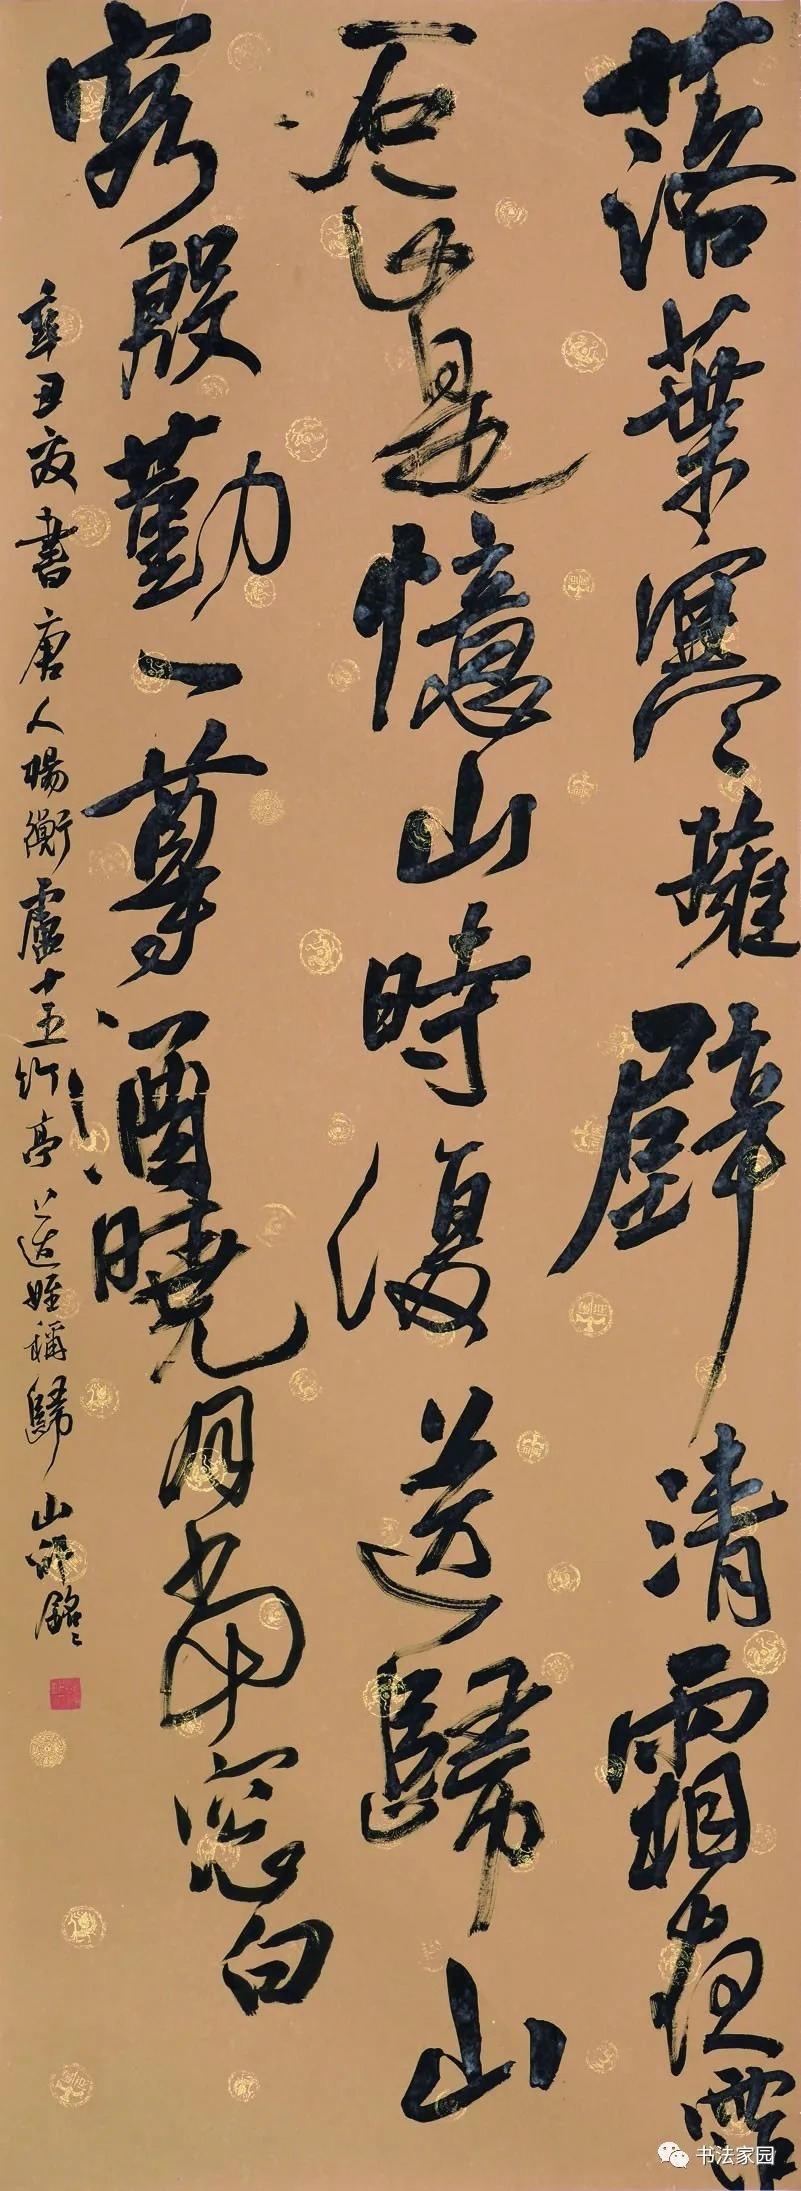 落葉寒擁壁清霜夜霑
石正是憶山時復送歸山
客殷勤一尊酒曉月當窓白
辛丑書唐人楊衡盧十五竹亭送姪稱歸山銘
书法家园